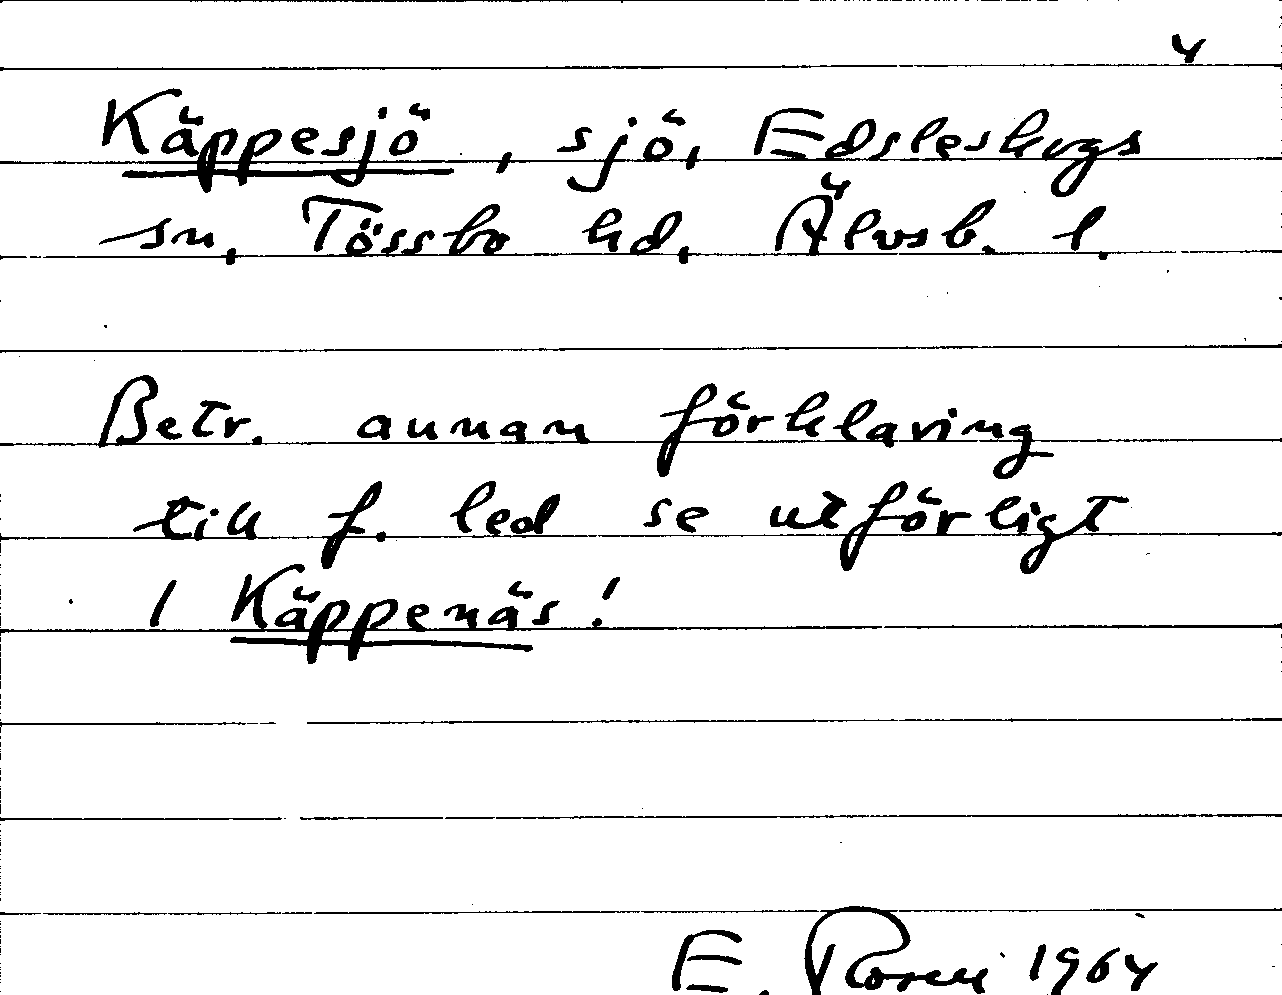 4
Käppesjö, sjö, Edsleskogs
sn, Tössbo hd, Älvsb. l.
Betr. annan förklaring
till f. led se utförligt
i Käppenäs!
E. Rosell 1964